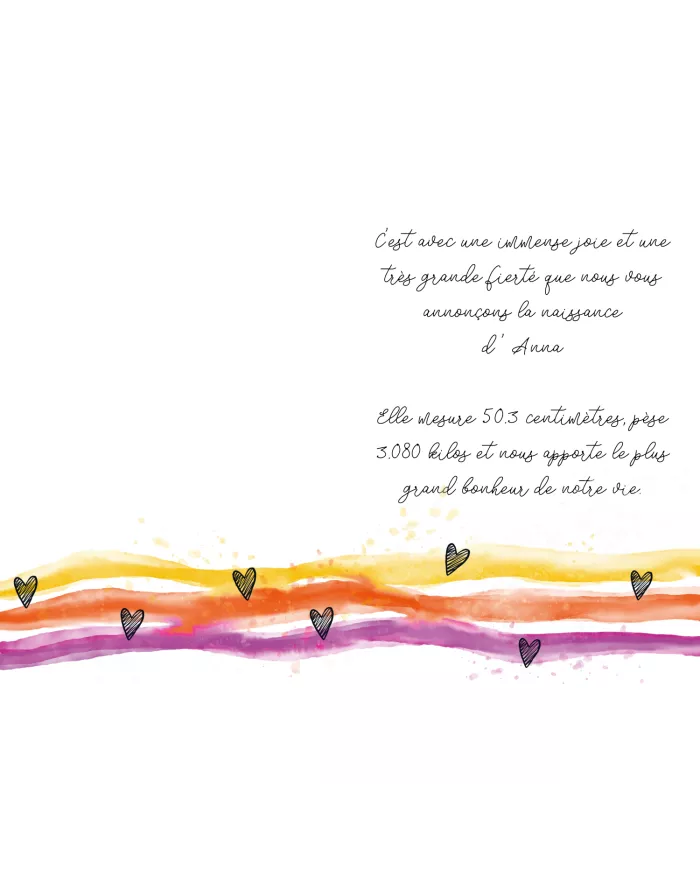 C'est avec une immense joie et une
très grande fierté que nous vous
annonçons la naissance
d' Anna
Elle mesure 50.3 centimètres, pèse
3.080 kilos et nous apporte le plus
grand bonheur de notre vie.